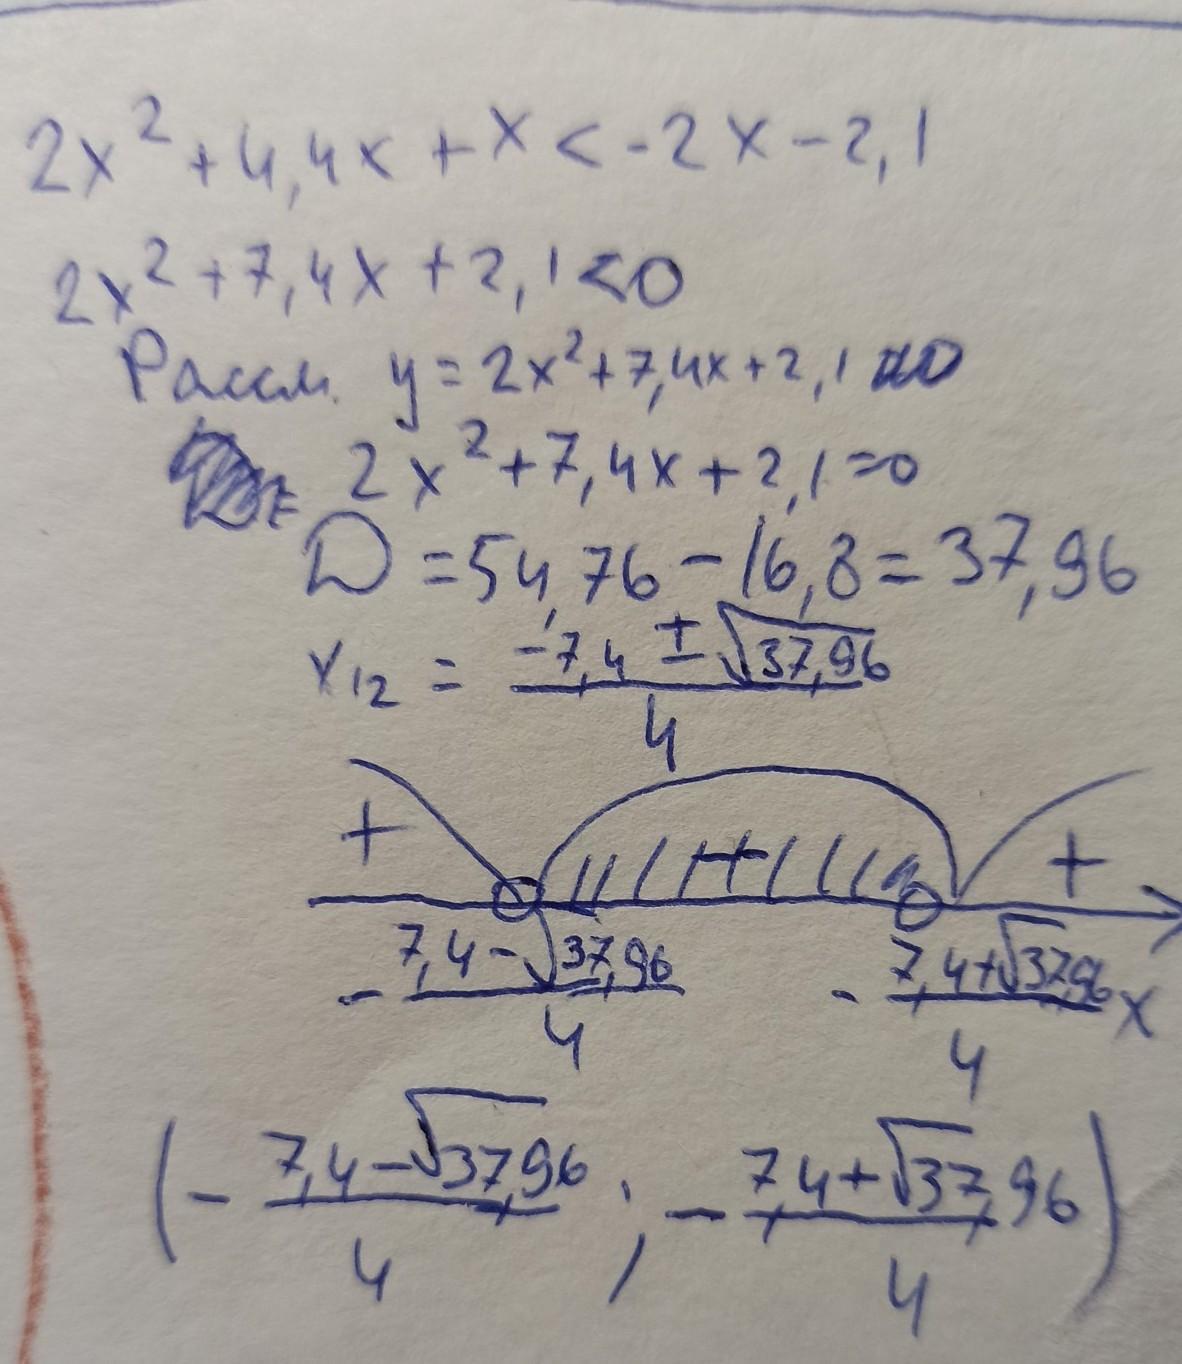 2x² + 4,4x + x < -2x - 2,1
2x² + 7,4x + 2,1 < 0
Рассм. y = 2x² + 7,4x + 2,1
2x² + 7,4x + 2,1 = 0
D = 54,76 - 16,8 = 37,96
x12 = (-7,4 ± √37,96)/4
+ + +
-(7,4 - √37,96)/4 -(7,4 + √37,96)/4 x
(-(7,4 - √37,96)/4 ; -(7,4 + √37,96)/4)